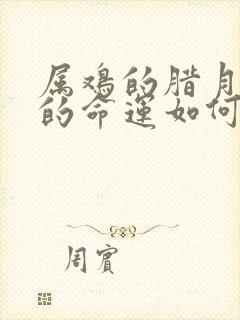 属鸡的腊月
的命运如何
周賓